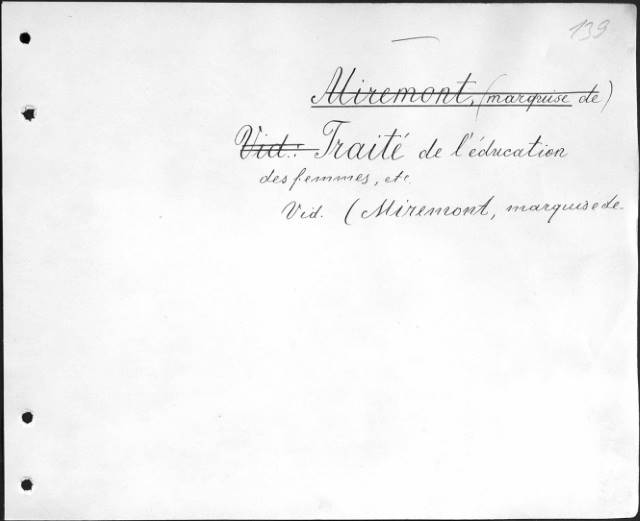 139
Miremont, (marquise de)
Vid.: Traité de l'éducation
des femmes, etc.
Vid. (Miremont, marquise de.